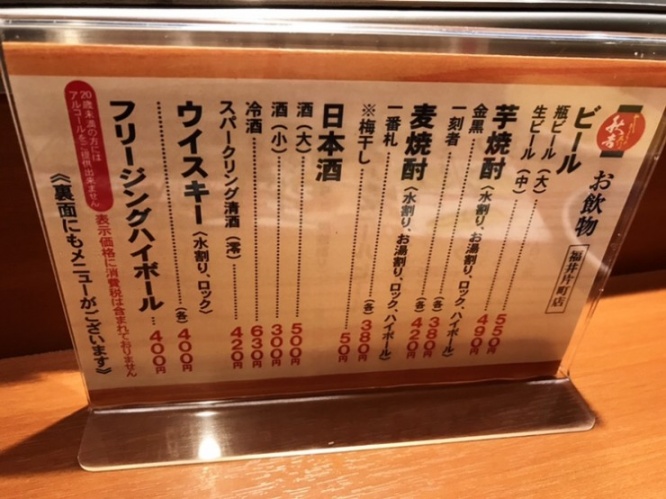 秋吉
お飲物
福井片町店
ビール
瓶ビール（大）……550円
生ビール（中）……490円
芋焼酎（水割り、お湯割り、ロック、ハイボール）
金黒……（各）380円
一刻者……（各）420円
麦焼酎（水割り、お湯割り、ロック、ハイボール）
一番札……（各）380円
※梅干し……50円
日本酒
酒（大）……500円
酒（小）……300円
冷酒……630円
スパークリング清酒（零）……420円
ウイスキー（水割り、ロック）……（各）400円
フリージングハイボール…400円
20歳未満の方には
アルコールをご提供出来ません
表示価格に消費税は含まれておりません
《裏面にもメニューがございます》